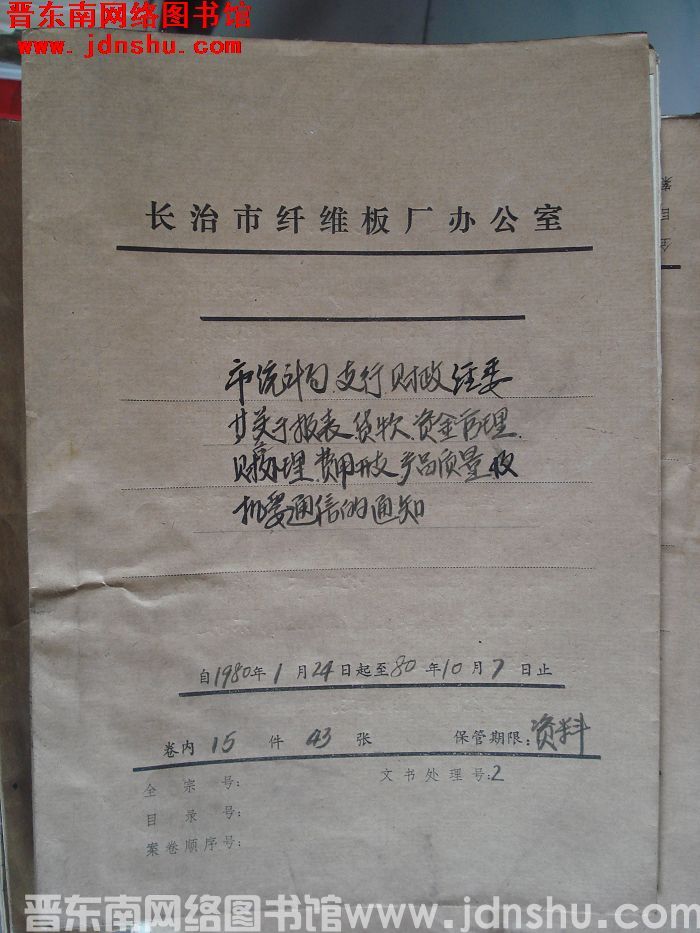 晋东南网络图书馆
www.jdnshu.com
长治市纤维板厂办公室
市统计局、支行、财政、经委
关于报表、货款、资金管理、
财务处理、费用开支、产品质量及
机要通信的通知
自1980年1月24日起至80年10月7日止
卷内15件43张 保管期限:资料
全宗号: 文书处理号:2
目录号:
案卷顺序号:
案
目
全
晋东南网络图书馆www.jdnshu.com